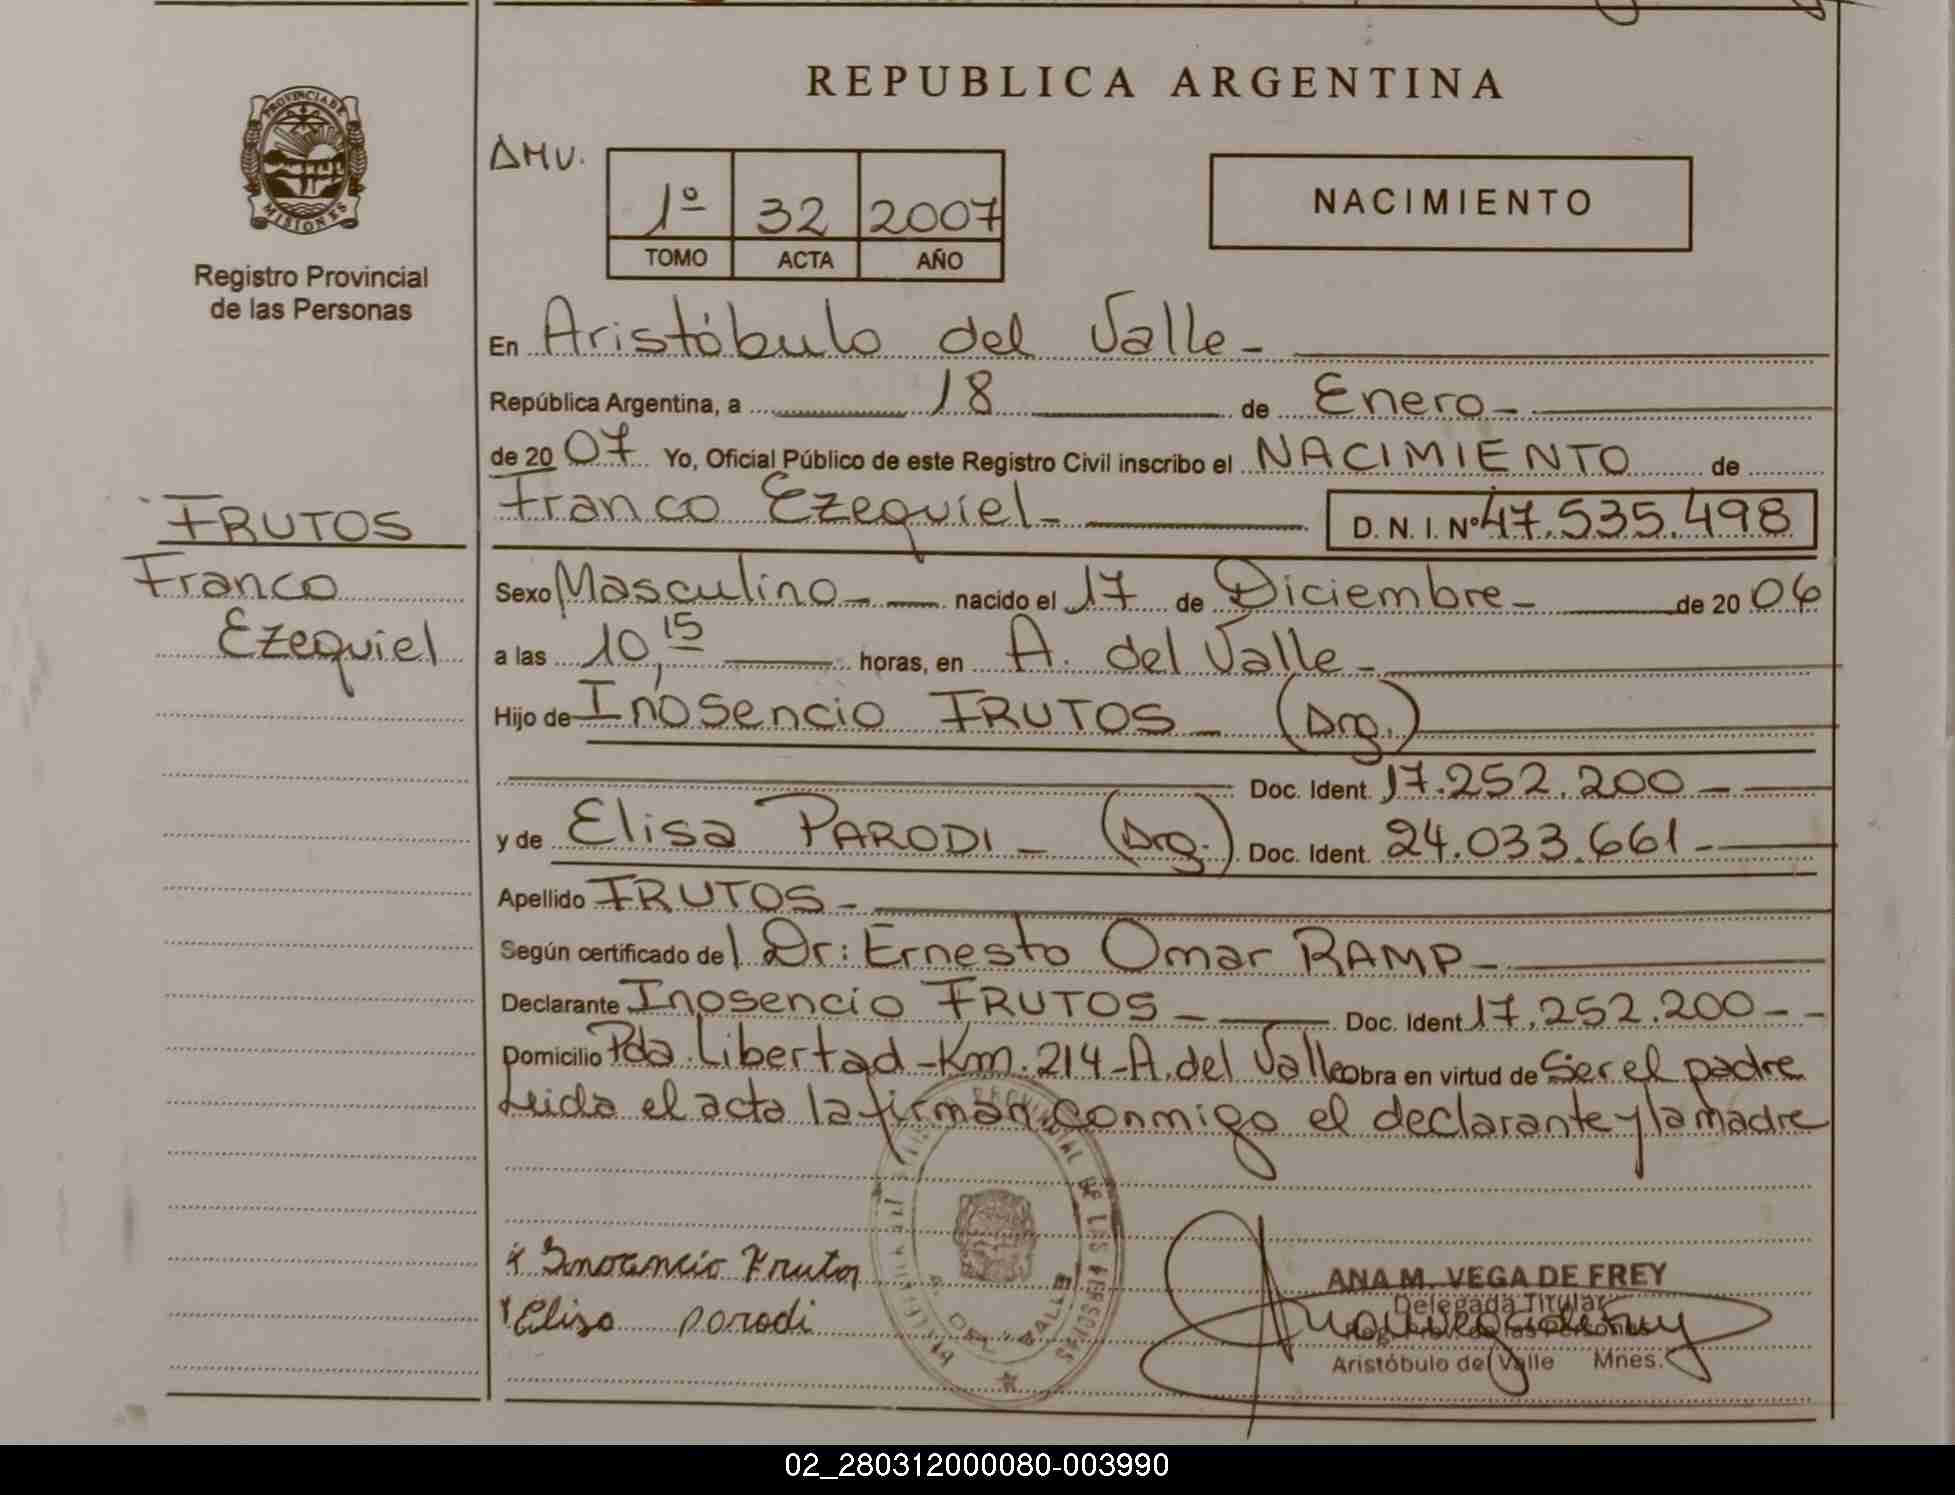 REPUBLICA ARGENTINA
PROVINCIA DE
MISIONES
Registro Provincial
de las Personas
AMV.
1º 32 2007
TOMO ACTA AÑO
NACIMIENTO
En Aristóbulo del Valle -
República Argentina, a 18 de Enero -
de 2007 Yo, Oficial Público de este Registro Civil inscribo el NACIMIENTO de
Franco Ezequiel - D. N. I. Nº 47.535.498
FRUTOS
Franco
Ezequiel
Sexo Masculino - nacido el 17 de Diciembre - de 2006
a las 10,15 horas, en A. del Valle -
Hijo de Inosencio FRUTOS - (Arg.)
Doc. Ident. 17.252.200 -
y de Elisa PARODI - (Arg.) Doc. Ident. 24.033.661 -
Apellido FRUTOS -
Según certificado del Dr: Ernesto Omar RAMP -
Declarante Inosencio FRUTOS - Doc. Ident 17.252.200 - -
Domicilio Pda. Libertad - Km. 214 - A. del Valle obra en virtud de Ser el padre
Leida el acta la firman conmigo el declarante y la madre
Inocencio Frutos
Elisa parodi
A. DEL VALLE
ANA M. VEGA DE FREY
Delegada Titular
Reg. Prov. de las Personas
Aristóbulo del Valle Mnes.
02_280312000080-003990